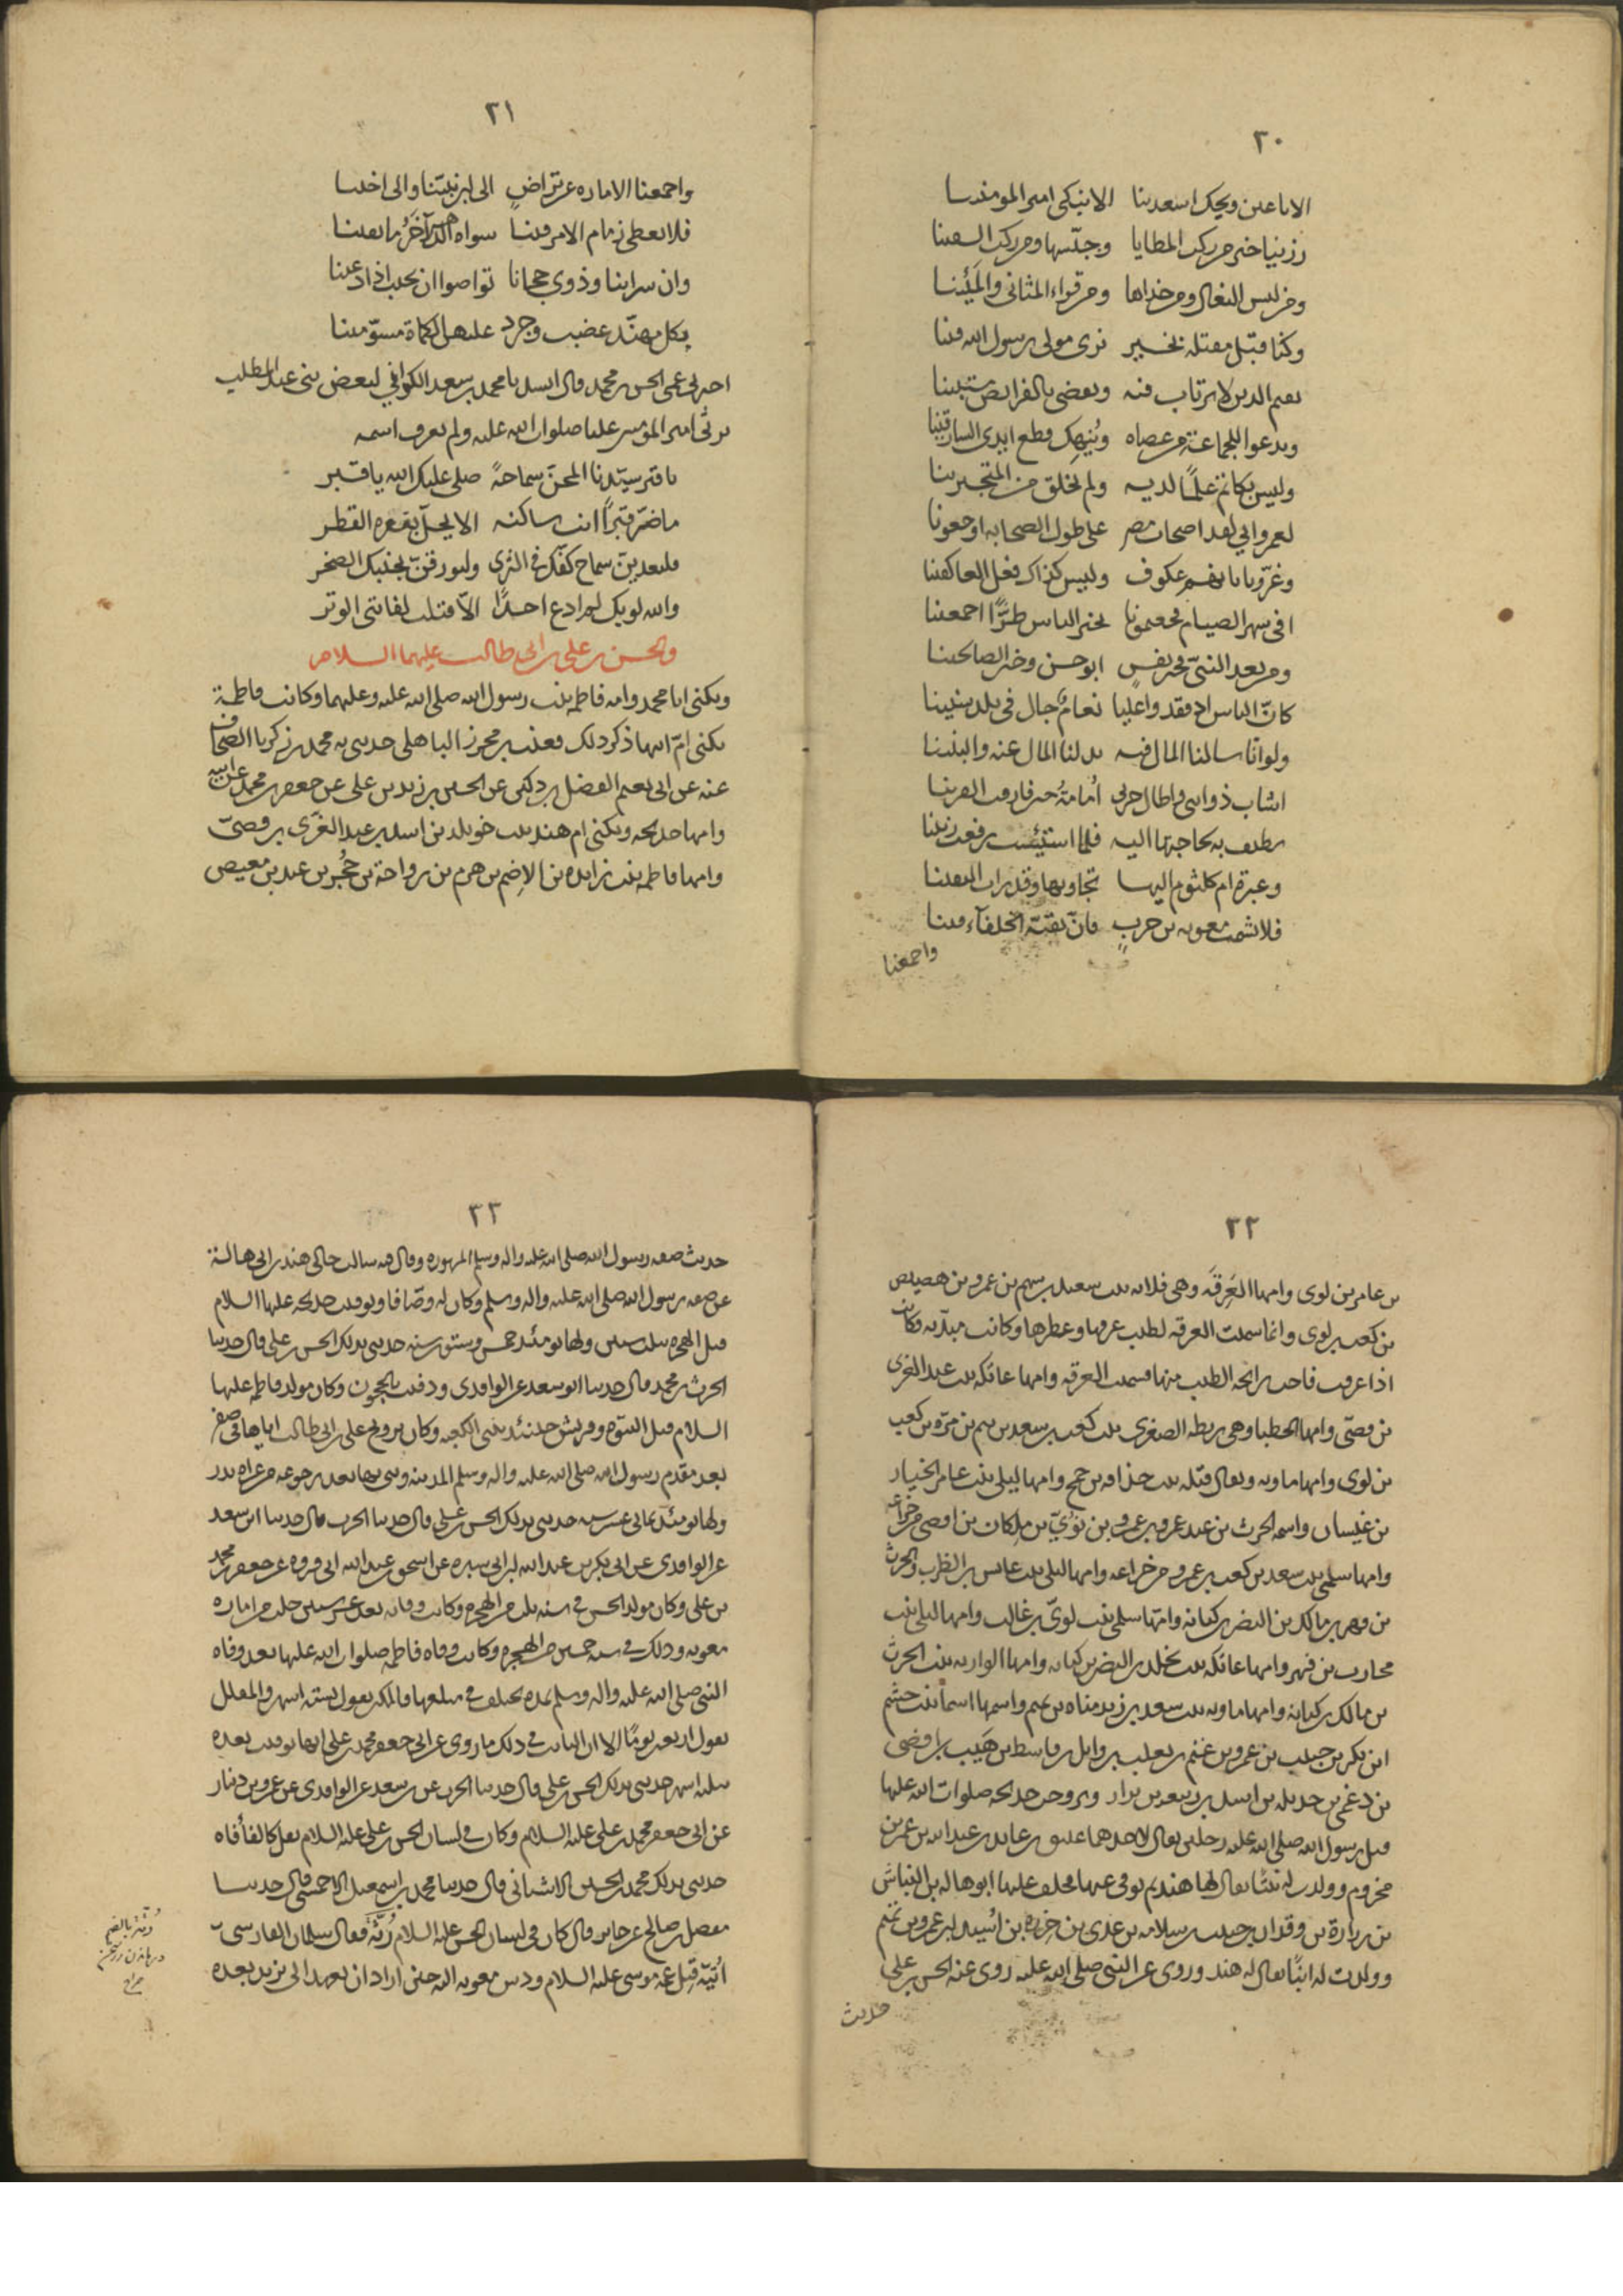 ٢٠
الا يا عين ويحك اسعدينا الا تبكي امير المومنينا
رزينا خير من ركب المطايا وحبّسها ومن ركب السفينا
ومن لبس النعال ومن حذاها ومن قراء المثاني والمئينا
وكنا قبل مقتله بخير نرى مولى رسول الله فينا
يقيم الدين لا يرتاب فيه ويقضي بالفرايض مستبينا
ويدعوا للجماعة من عصاه وينهك قطع ايدي السارقينا
وليس بكاتم علمًا لديه ولم يخلق من المتجبرينا
لعمر ابي لقد اصحاب مصر على طول الصحابه اوجعونا
وغرّونا بانهم عكوف وليس كذاك فعل العاكفينا
افي شهر الصيام فجعتمونا بخير الناس طرًّا اجمعينا
ومن بعد النبيّ فخير نفسٍ ابو حسن وخير الصالحينا
كانّ الناس اذ فقدوا عليا نعام جال في بلد سنينا
ولو انّا سالنا المال فيه بذلنا المال عنه والبنينا
اشاب ذوابتي واطال حزني أمامةُ حين فارقت القرينا
تطوف به لحاجتها اليه فلما استيئست رفعت رنينا
وعبرة ام كلثوم اليها تجاوبها وقد رات اليقينا
فلا تشمت معوية بن حربٍ فانّ بقيّة الخلفآء فينا
واجمعنا
٢١
واجمعنا الاماره عن تراضٍ الى ابن نبيّنا والى اخينا
فلا نعطي زمام الامر فينا سواه الدهر آخرَ ما بقينا
وان سراتنا وذوي حجانا تواصوا ان نجيب اذا دعينا
بكل مهنّد عضب وجرد عليهن الكماة مسوّمينا
اخبرني عمي الحسن بن محمد قال انشدنا محمد بن سعد الكواني لبعض بني عبد المطلب
يرثي امير المؤمنين عليا صلوات الله عليه ولم يعرف اسمه
يا قبر سيّدنا المجنّ سماحةً صلى عليك الله يا قبر
ما ضرّ قبرًا انت ساكنه الا يحلّ بقعره القطر
فليعدينّ سماح كفّك في الثرى وليورقنّ بجنبك الصخر
والله لو بك لم ادع احدًا الّا قتلت لفاتني الوتر
والحسن بن علي بن ابي طالب عليهما السلام
ويكنى ابا محمد وامه فاطمه بنت رسول الله صلى الله عليه وعليهما وكانت فاطمة
تكنى امّ ابيها ذكر ذلك قعنب بن محرز الباهلي حدثني به محمد بن زكريا الصحاف
عنه عن ابي نعيم الفضل بن دكين عن الحسين بن زيد بن علي عن جعفر بن محمد عن ابيه
وامها خديجه وتكنى ام هند بنت خويلد بن اسد بن عبد العُزّى بن قصيّ
وامها فاطمه بنت زايده بن الاصم بن هرم بن رواحة بن حُجْر بن عبد بن معيص
٢٢
بن عامر بن لوى وامها العَرِقَه وهي فلانه بنت سعيد بن سهم بن عمرو بن هصيص
بن كعب بن لوى وانما سميت العرقه لطيب عرقها وعطرها وكانت مبدّنه وكانت
اذا عرقت فاحت رائحه الطيب منها فسميت العرقه وامها عاتكه بنت عبد العزى
بن قصّي وامها الحظيا وهي ريطه الصغرى بنت كعب بن سعد بن تيم بن مرّه بن كعب
بن لوى وامها ماويه ويقال قيله بنت حذافه بن جمح وامها ليلى بنت عامر الخيار
بن غبشان واسمه الحرث بن عبد عمرو بن عمرو بن بؤيّ بن ملكان بن افصى من خزاعه
وامها سلمى بنت سعد بن كعب بن عمرو من خزاعه وامها ليلى بنت عابس بن الظرب والحرث
بن فهر بن مالك بن النضر بن كنانه وامّها سلمى بنت لويّ بن غالب وامها ليلى بنت
محارب بن فهر وامها عاتكه بنت مخلد بن النضر بن كنانه وامها الوارثه بنت الحرث
بن مالك بن كنانه وامها ماويه بنت سعد بن زيد مناه بن تميم واسمها اسماء بنت جشم
ابن بكر بن حبيب بن عمرو بن غنم بن تغلب بن وايل بن قاسط بن هَيَب بن افصى
بن دعمي بن جديله بن اسد بن ربيعه بن نزار وتزوجت خديجه صلوات الله عليها
قبل رسول الله صلى الله عليه رجلين يقال لاحدهما عتيق بن عايد بن عبد الله بن عمر بن
مخزوم وولدت له بنتًا يقال لها هند ثم توفي عنها فخلف عليها ابو هاله بن النباش
بن زرارة بن وقدان بن حبيب بن سلامه بن عدى بن جروه بن اسيد بن عمرو بن تميم
وولدت له ابنًا يقال له هند وروى عن النبي صلى الله عليه روى عنه الحسن بن علي
حديث
٢٣
حديث صفه رسول الله صلى الله عليه واله وسلم المشهوره وقال فيه سالت خالي هند بن ابي هالة
عن صفه رسول الله صلى الله عليه واله وسلم وكان له وصّافا وتوفيت خديجه عليها السلام
قبل الهجره بثلث سنين ولها يومئذ خمس وستون سنه حدثني بذلك الحسن بن علي قال حدثنا
الحرث بن محمد قال حدثنا ابن سعد عن الواقدى ودفنت بالحجون وكان مولد فاطمه عليها
السلام قبل النبوّه وقريش حينئذ تبني الكعبه وكان تزويج علي بن ابي طالب اياها في صفر
بعد مقدم رسول الله صلى الله عليه واله وسلم المدينه وبنى بها بعد رجوعه من غزاه بدر
ولها يومئذ ثماني عشره سنه حدثني بذلك الحسن بن علي قال حدثنا الحرث قال حدثنا ابن سعد
عن الواقدى عن ابي بكر بن عبد الله بن ابي سبره عن اسحق بن عبد الله ابي فروه عن جعفر بن محمد
بن علي وكان مولد الحسن في سنه ثلث من الهجره وكانت وفاته بعد عشر سنين خلت من اماره
معويه وذلك في سنه خمسين من الهجره وكانت وفاه فاطمه صلوات الله عليها بعد وفاه
النبي صلى الله عليه واله وسلم بمده يختلف في مبلغها فالمكثر يقول بستة اشهر والمقلل
يقول اربعين يومًا الا ان الثابت في ذلك ما روى عن ابي جعفر محمد بن علي انها توفيت بعده
بثلثه اشهر حدثني بذلك الحسن بن علي قال حدثنا الحرث عن بن سعد عن الواقدى عن عمرو بن دينار
عن ابي جعفر محمد بن علي عليه السلام وكان في لسان الحسن بن علي عليه السلام ثقل كالفأفاه
حدثني بذلك محمد بن الحسين الاشناني قال حدثنا محمد بن اسمعيل الاحمسي قال حدثنا
مفضل بن صالح عن جابر قال كان في لسان الحسن عليه السلام رُتّة فقال سلمان الفارسى
اتته من قبل عمّه موسى عليه السلام ودس معويه اليه حين اراد ان يعهد الى يزيد بعده
رُتّة بالضم